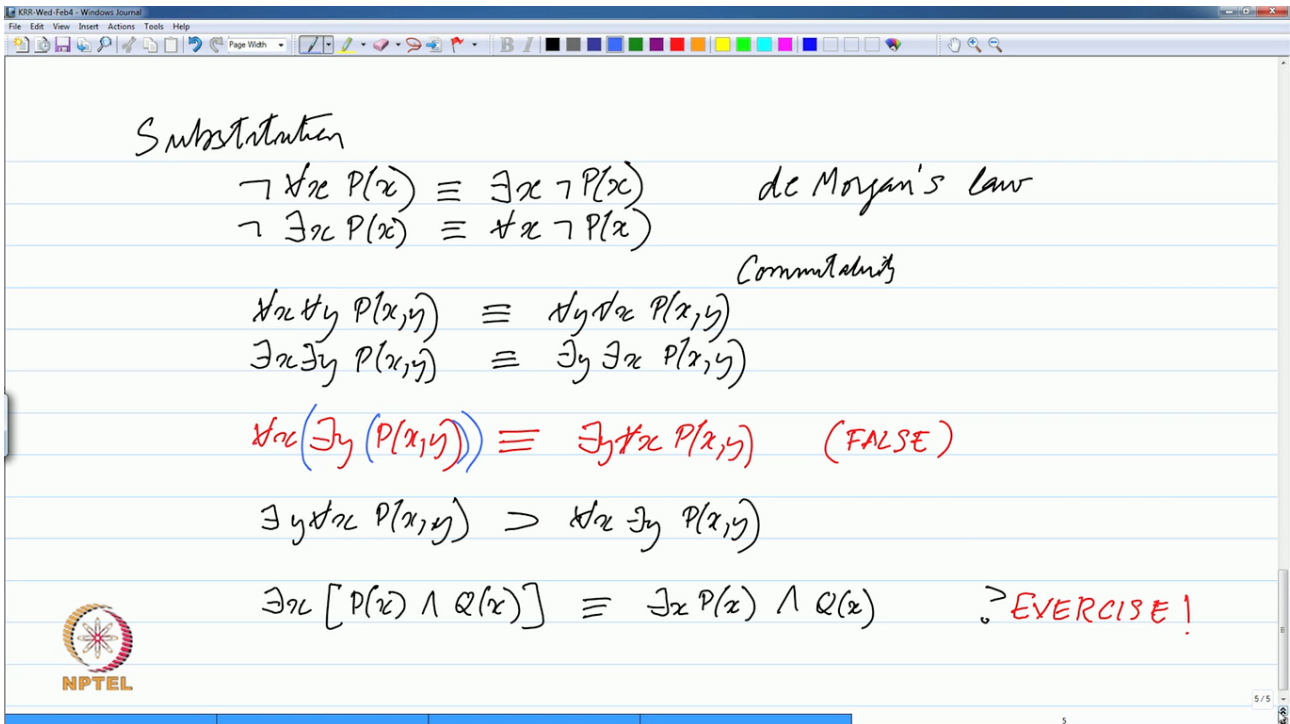 KRR-Wed-Feb4 - Windows Journal
File Edit View Insert Actions Tools Help
Page Width B I
Substitution
¬ ∀x P(x) ≡ ∃x ¬ P(x) de Morgan's law
¬ ∃x P(x) ≡ ∀x ¬ P(x)
Commutativity
∀x ∀y P(x,y) ≡ ∀y ∀x P(x,y)
∃x ∃y P(x,y) ≡ ∃y ∃x P(x,y)
∀x (∃y (P(x,y))) ≡ ∃y ∀x P(x,y) (FALSE)
∃y ∀x P(x,y) ⊃ ∀x ∃y P(x,y)
∃x [P(x) ∧ Q(x)] ≡ ∃x P(x) ∧ Q(x) ? EXERCISE!
NPTEL
5/5
5